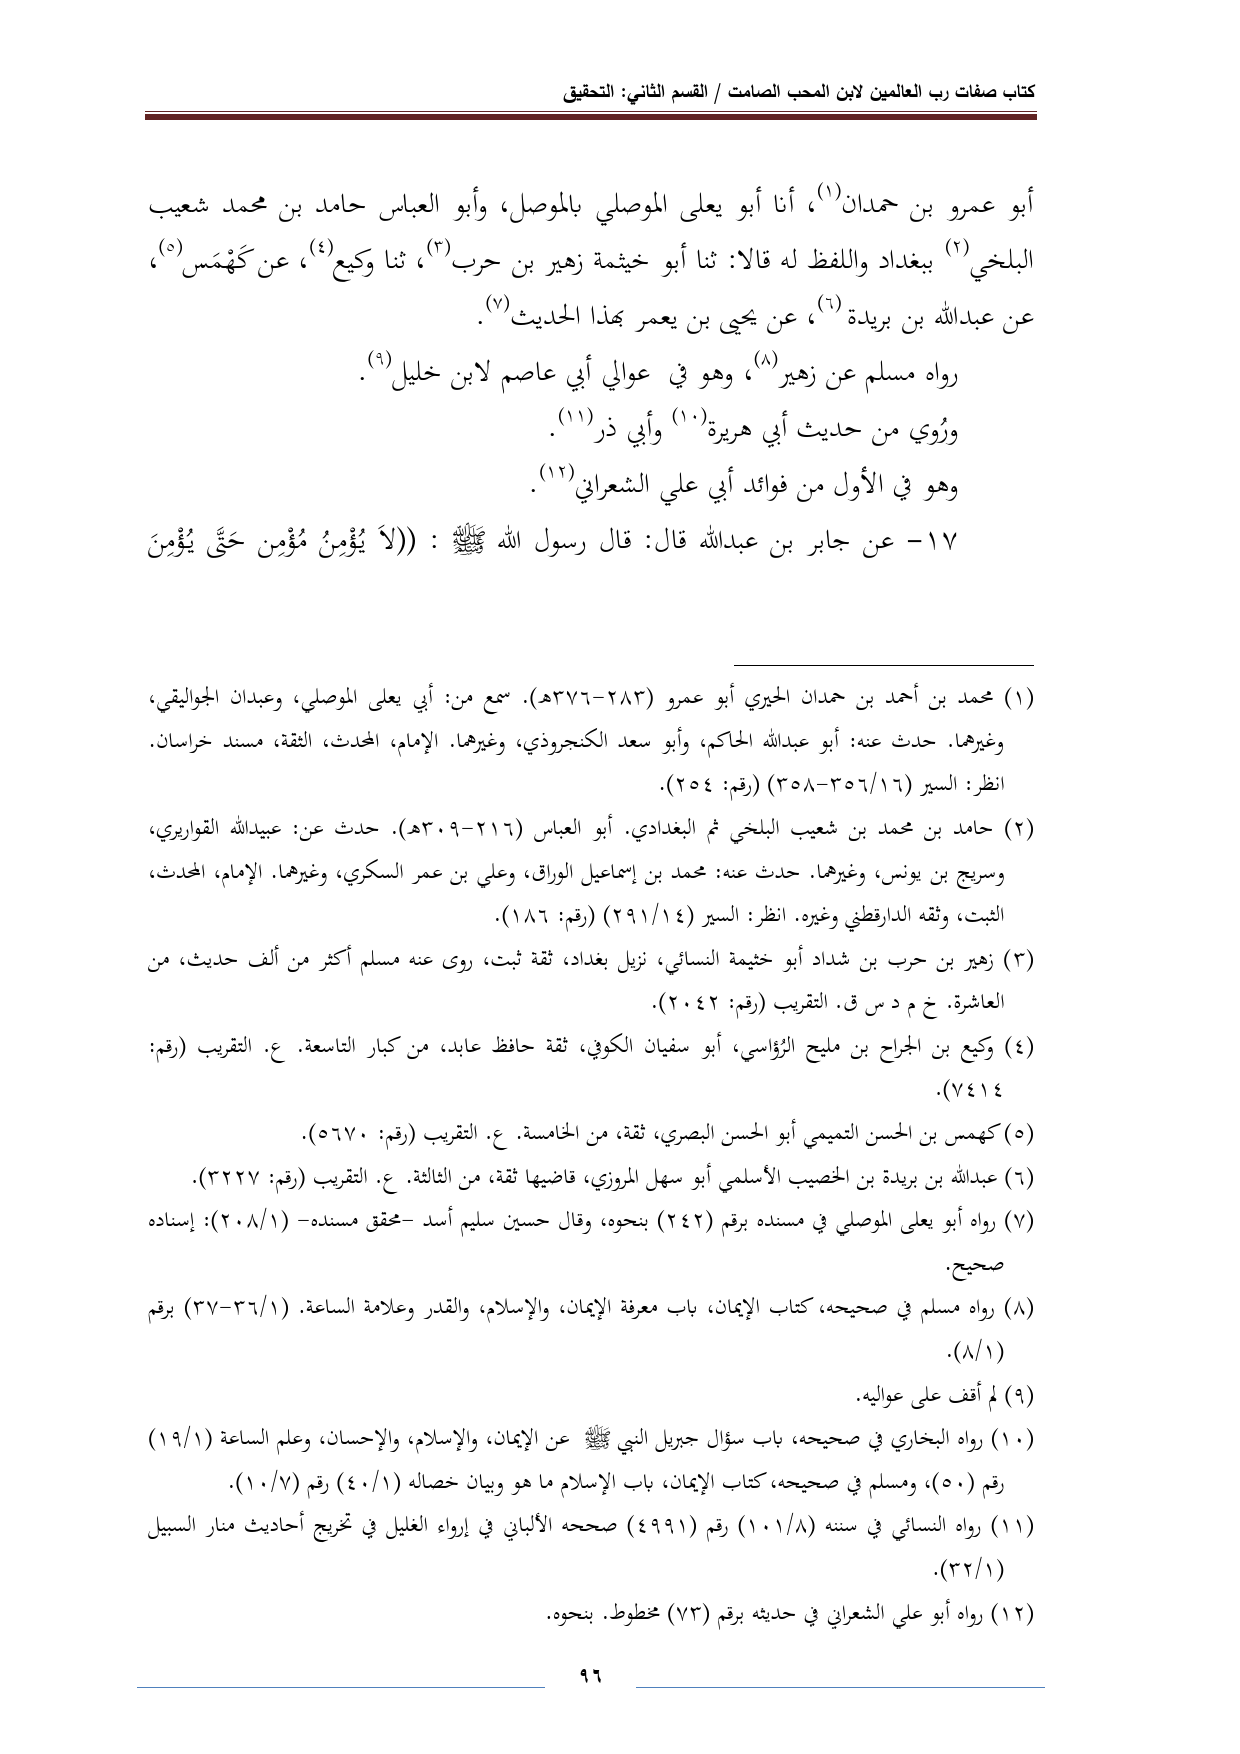 كتاب صفات رب العالمين لابن المحب الصامت / القسم الثاني: التحقيق
أبو عمرو بن حمدان(١)، أنا أبو يعلى الموصلي بالموصل، وأبو العباس حامد بن محمد شعيب
البلخي(٢) ببغداد واللفظ له قالا: ثنا أبو خيثمة زهير بن حرب(٣)، ثنا وكيع(٤)، عن كَهْمَس(٥)،
عن عبدالله بن بريدة(٦)، عن يحيى بن يعمر بهذا الحديث(٧).
رواه مسلم عن زهير(٨)، وهو في عوالي أبي عاصم لابن خليل(٩).
ورُوي من حديث أبي هريرة(١٠) وأبي ذر(١١).
وهو في الأول من فوائد أبي علي الشعراني(١٢).
١٧- عن جابر بن عبدالله قال: قال رسول الله ﷺ : ((لاَ يُؤْمِنُ مُؤْمِن حَتَّى يُؤْمِنَ
(١) محمد بن أحمد بن حمدان الحيري أبو عمرو (٢٨٣-٣٧٦هـ). سمع من: أبي يعلى الموصلي، وعبدان الجواليقي،
وغيرهما. حدث عنه: أبو عبدالله الحاكم، وأبو سعد الكنجروذي، وغيرهما. الإمام، المحدث، الثقة، مسند خراسان.
انظر: السير (٣٥٦/١٦-٣٥٨) (رقم: ٢٥٤).
(٢) حامد بن محمد بن شعيب البلخي ثم البغدادي. أبو العباس (٢١٦-٣٠٩هـ). حدث عن: عبيدالله القواريري،
وسريج بن يونس، وغيرهما. حدث عنه: محمد بن إسماعيل الوراق، وعلي بن عمر السكري، وغيرهما. الإمام، المحدث،
الثبت، وثقه الدارقطني وغيره. انظر: السير (٢٩١/١٤) (رقم: ١٨٦).
(٣) زهير بن حرب بن شداد أبو خثيمة النسائي، نزيل بغداد، ثقة ثبت، روى عنه مسلم أكثر من ألف حديث، من
العاشرة. خ م د س ق. التقريب (رقم: ٢٠٤٢).
(٤) وكيع بن الجراح بن مليح الرُؤاسي، أبو سفيان الكوفي، ثقة حافظ عابد، من كبار التاسعة. ع. التقريب (رقم:
٧٤١٤).
(٥) كهمس بن الحسن التميمي أبو الحسن البصري، ثقة، من الخامسة. ع. التقريب (رقم: ٥٦٧٠).
(٦) عبدالله بن بريدة بن الخصيب الأسلمي أبو سهل المروزي، قاضيها ثقة، من الثالثة. ع. التقريب (رقم: ٣٢٢٧).
(٧) رواه أبو يعلى الموصلي في مسنده برقم (٢٤٢) بنحوه، وقال حسين سليم أسد -محقق مسنده- (٢٠٨/١): إسناده
صحيح.
(٨) رواه مسلم في صحيحه، كتاب الإيمان، باب معرفة الإيمان، والإسلام، والقدر وعلامة الساعة. (٣٦/١-٣٧) برقم
(٨/١).
(٩) لم أقف على عواليه.
(١٠) رواه البخاري في صحيحه، باب سؤال جبريل النبي ﷺ عن الإيمان، والإسلام، والإحسان، وعلم الساعة (١٩/١)
رقم (٥٠)، ومسلم في صحيحه، كتاب الإيمان، باب الإسلام ما هو وبيان خصاله (٤٠/١) رقم (١٠/٧).
(١١) رواه النسائي في سننه (١٠١/٨) رقم (٤٩٩١) صححه الألباني في إرواء الغليل في تخريج أحاديث منار السبيل
(٣٢/١).
(١٢) رواه أبو علي الشعراني في حديثه برقم (٧٣) مخطوط. بنحوه.
٩٦